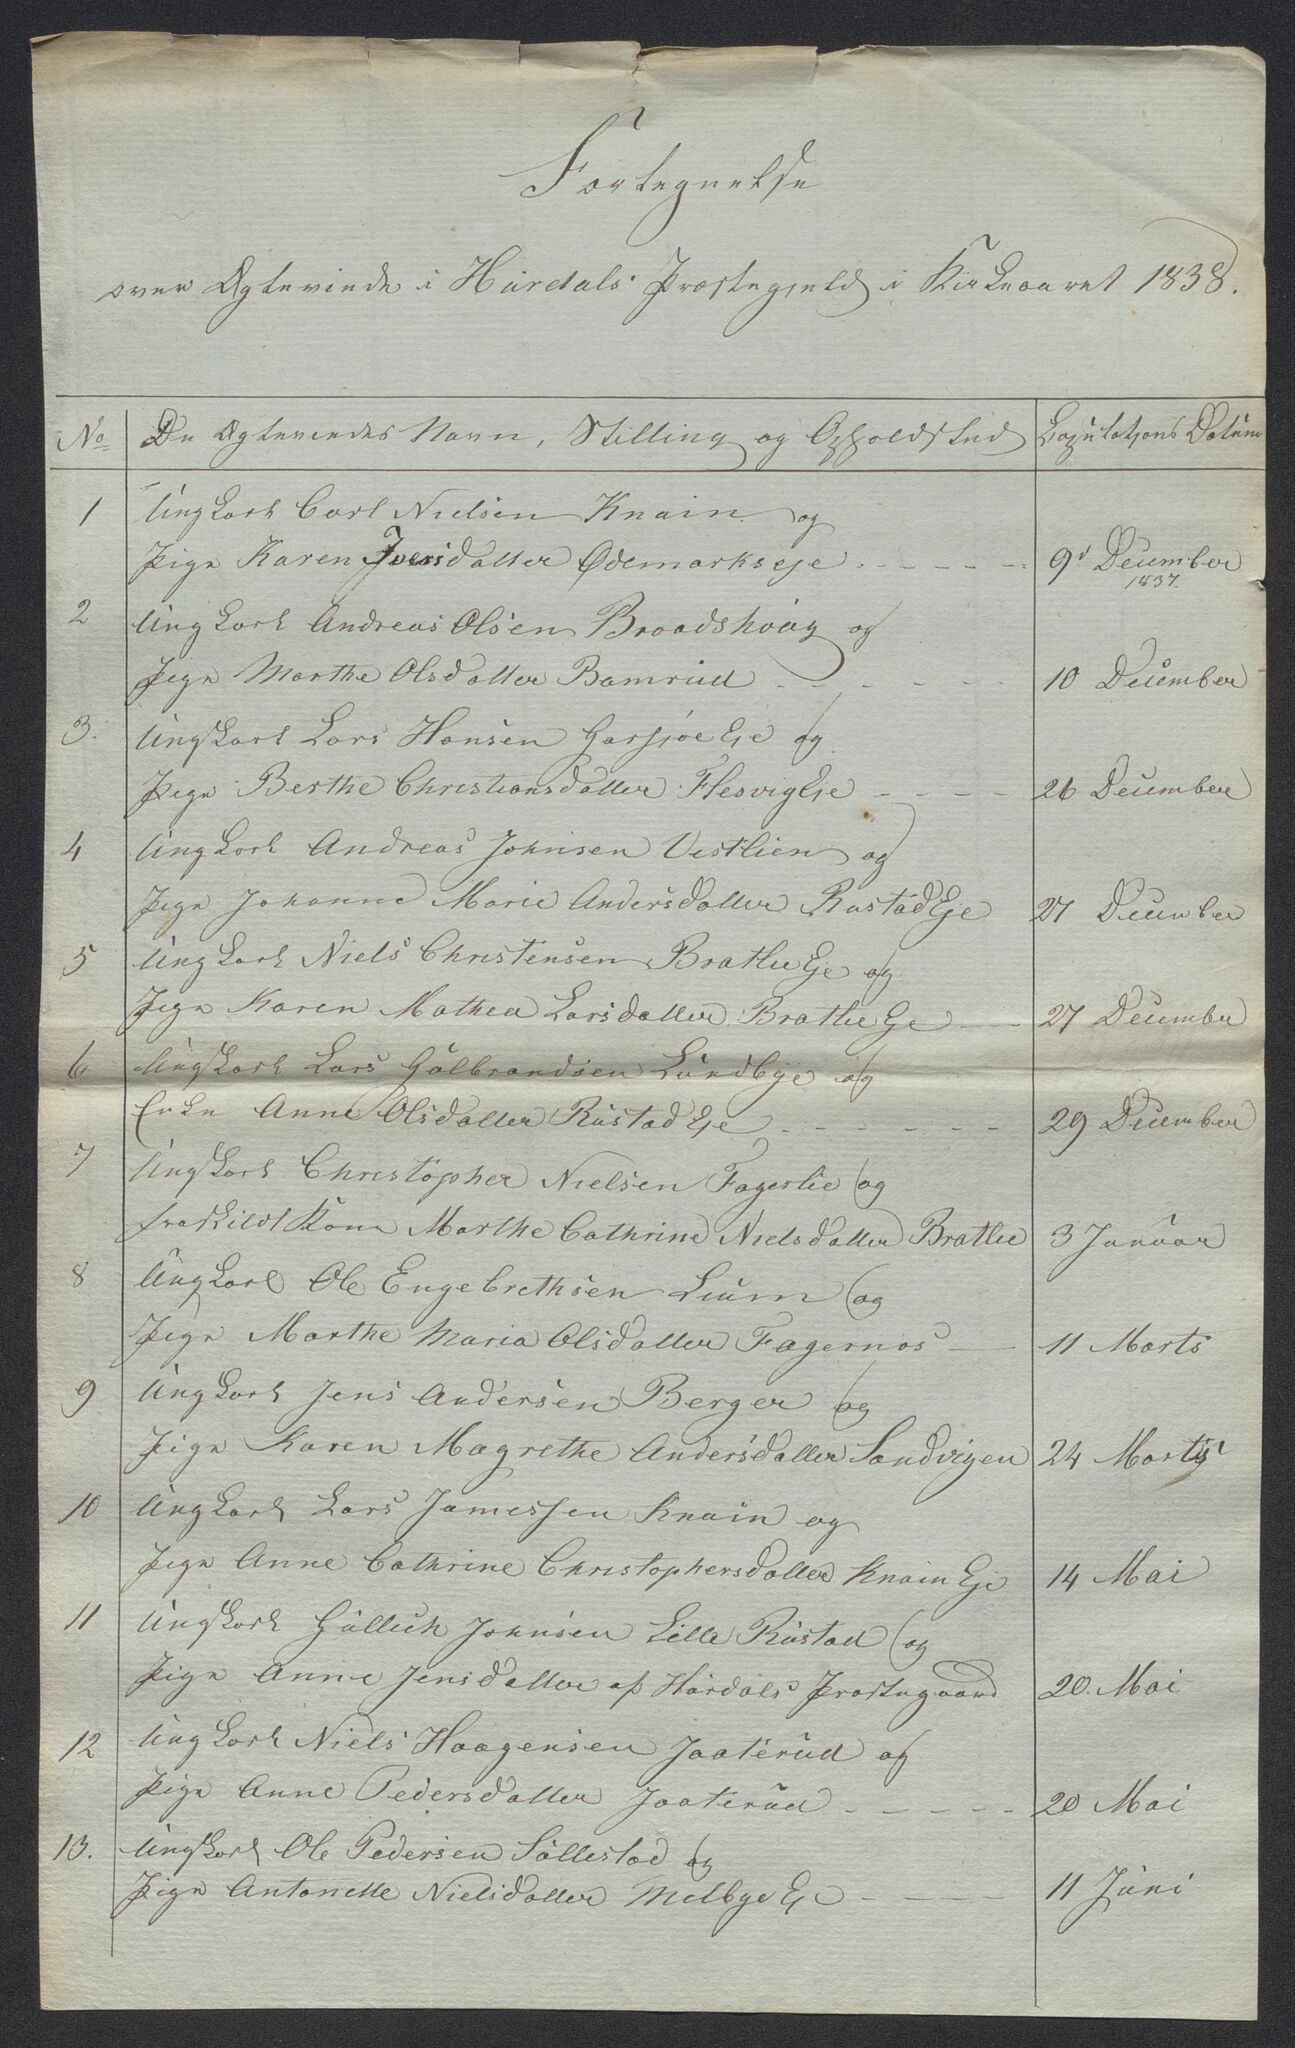 Fortegnelse
over Ægteviede i Hurdals Præstegjeld i Kirkeaaret 1838.
No De Ægteviedes Navn, Stilling og Opholdsted Copulations Datum
1 Ungkarl Carl Nielsen Knain og
Pige Karen Iversdatter Ødemarkseje 9d December
1837.
2 Ungkarl Andreas Olsen Braadshoug og
Pige Marthe Olsdatter Bamrud 10 December
3. Ungkarl Lars Hansen Garsjøe Eje og
Pige Berthe Christiansdatter Flesvig Eje 26 December
4 Ungkarl Andreas Johnsen Vestlien og
Pige Johanne Marie Andersdatter Rustad Eje 27 December
5 Ungkarl Niels Christensen Bratlie Eje og
Pige Karen Mathea Larsdatter Bratlie Eje 27 December
6 Ungkarl Lars Gulbrandsen Lundbye og
Enke Anne Olsdatter Rustad Eje 29 December
7 Ungkarl Christopher Nielsen Fagerlie og
fraskildt Kone Marthe Cathrine Nielsdatter Bratlie 3 Januar
8 Ungkarl Ole Engebrethsen Lium og
Pige Marthe Maria Olsdatter Fagernæs 11 Marts
9 Ungkarl Jens Andersen Berger og
Pige Karen Magrethe Andersdatter Sandvigen 24 Marts
10 Ungkarl Lars Jamessen Knain og
Pige Anne Cathrine Christophersdatter Knain Eje 14 Mai
11 Ungkarl Gullich Johnsen Lille Rustad og
Pige Anne Jensdatter af Hurdals Præstegaard 20. Mai
12 Ungkarl Niels Haagensen Jaaterud og
Pige Anne Pedersdatter Jaaterud 20 Mai
13. Ungkarl Ole Pedersen Sullestad og
Pige Antonette Nielsdatter Melbye Eje 11 Juni